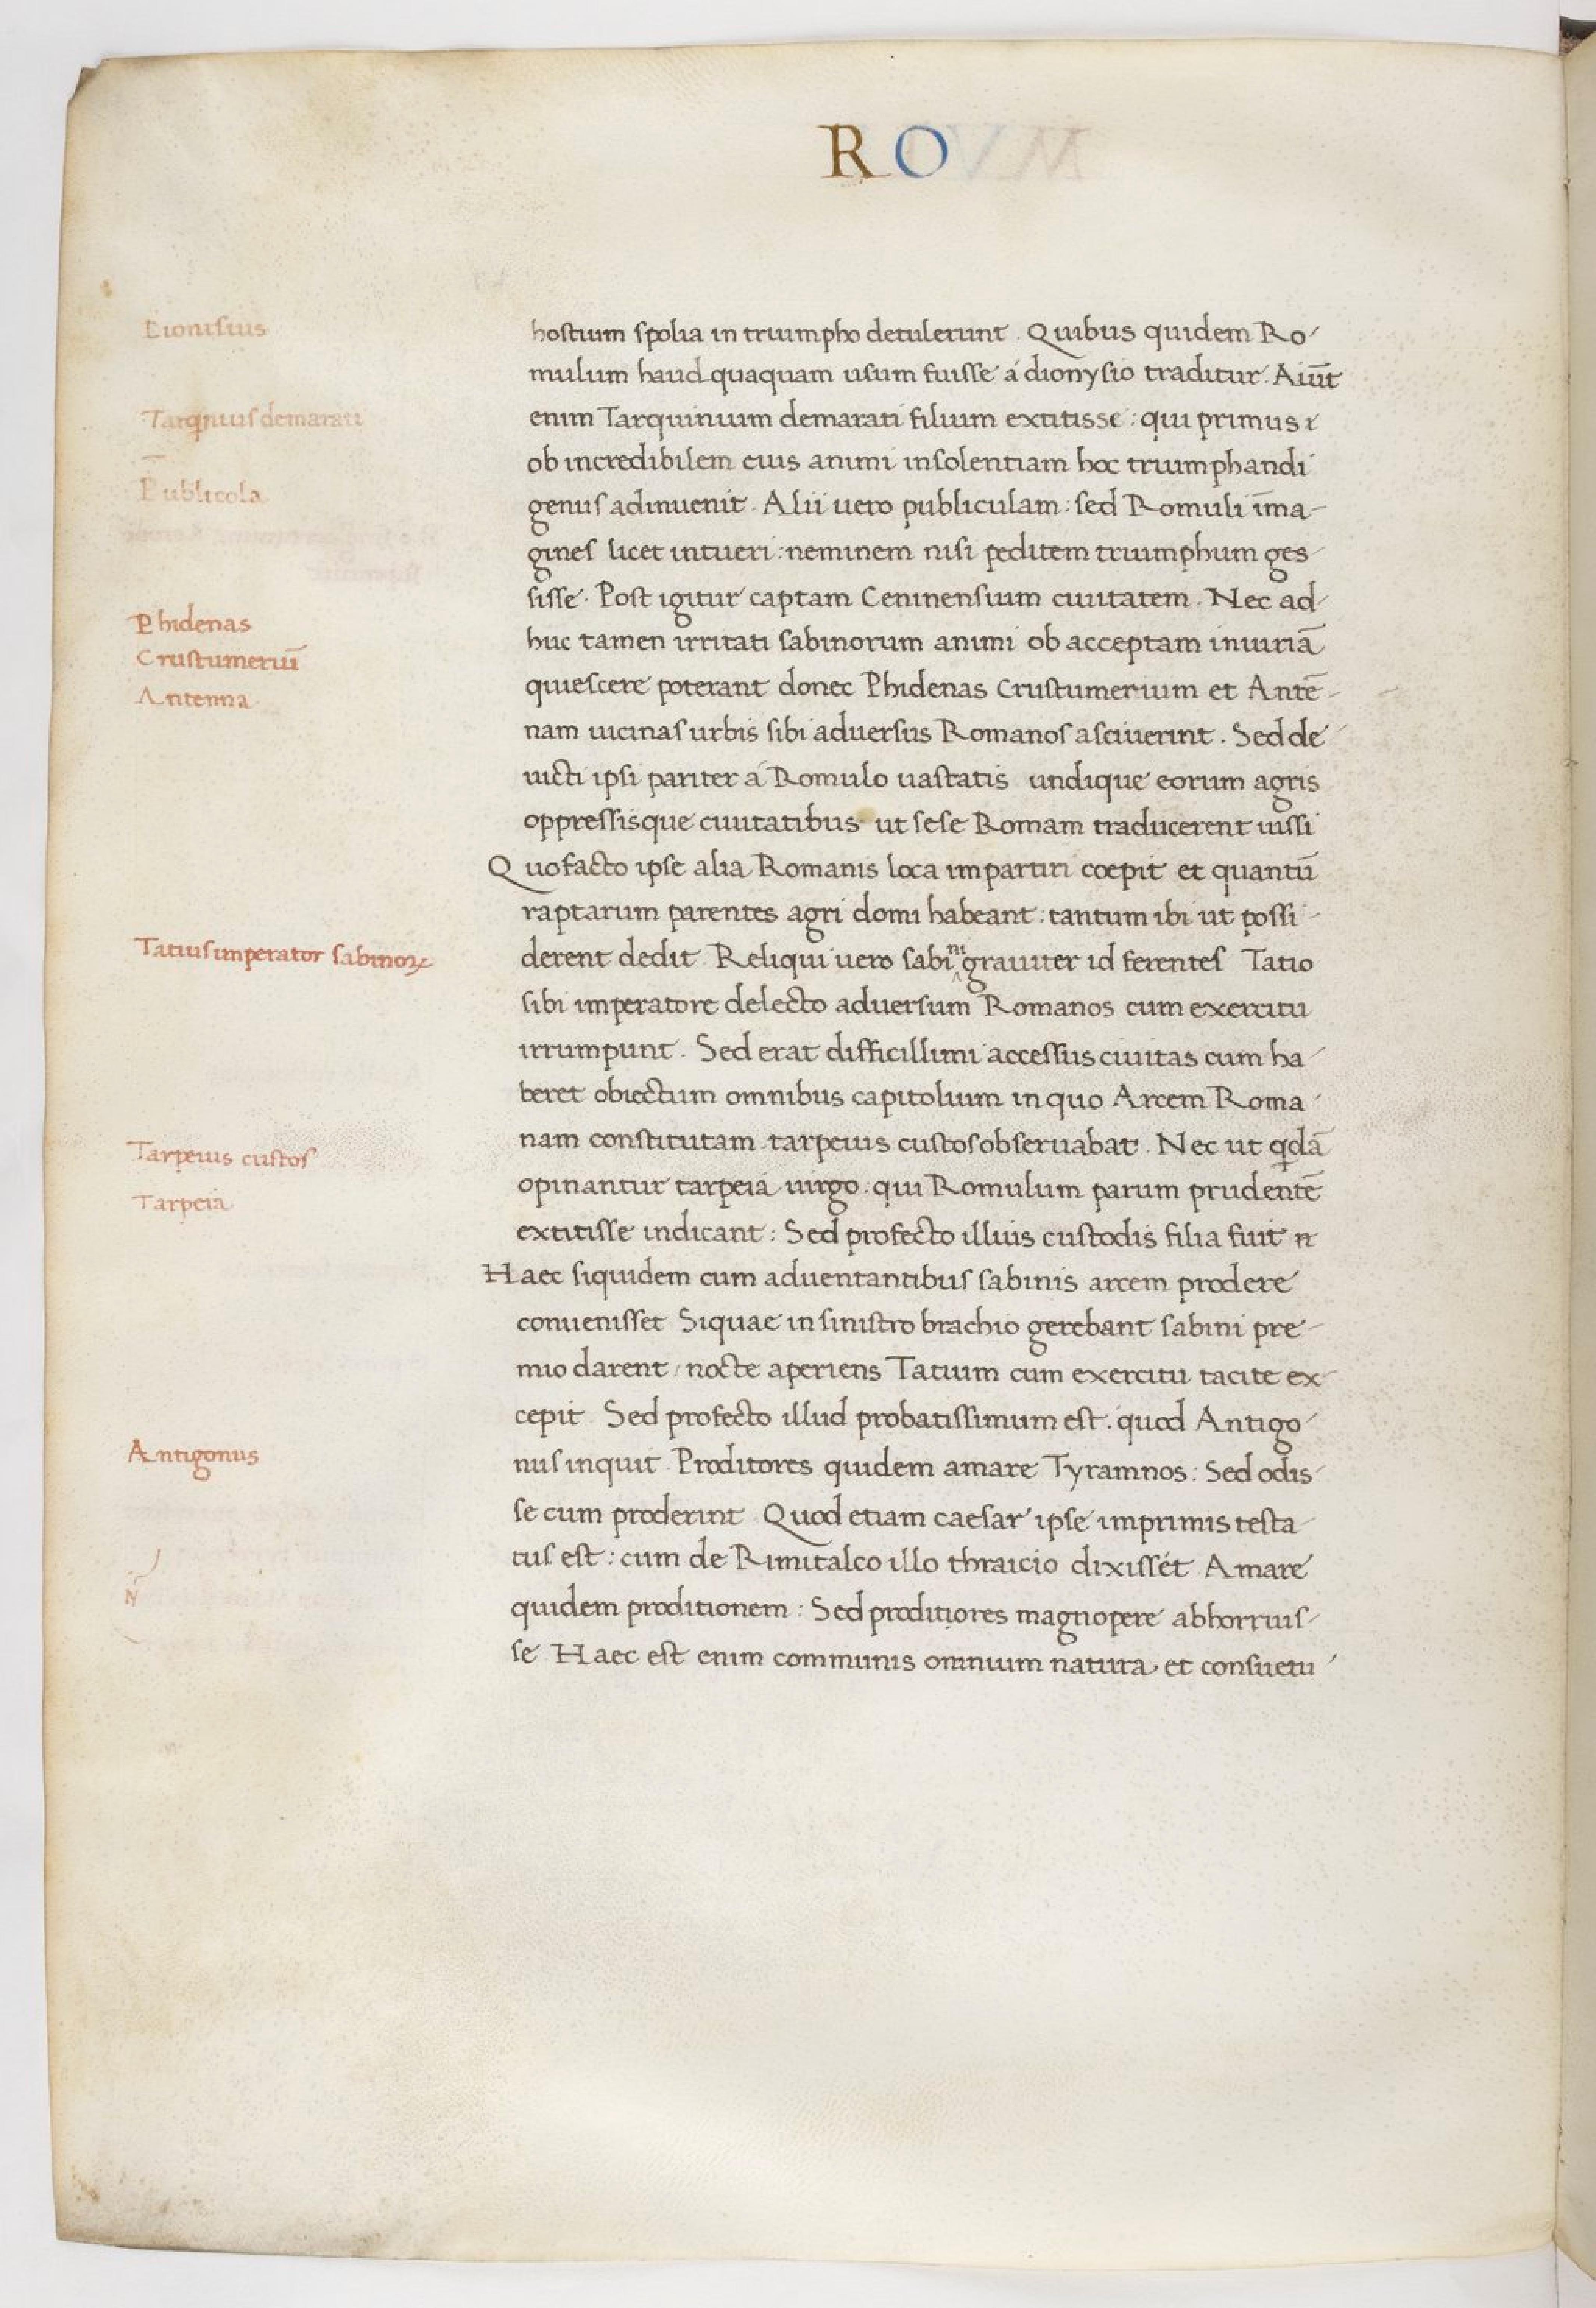 RO
Dionisius
hostium spolia in triumpho detulerunt. Quibus quidem Ro-
mulum haud quaquam usum fuisse á dionysio traditur. Aiūt
Tarqnius demarati
enim Tarquinium demarati filium extitisse: qui primus
ob incredibilem eius animi insolentiam hoc triumphandi
Publicola
genus adinuenit. Alii uero publiculam: sed Romuli īma-
gines licet intueri: neminem nisi peditem triumphum ges-
sisse. Post igitur captam Ceninensium ciuitatem. Nec ad-
Phidenas
huc tamen irritati sabinorum animi ob acceptam iniuriā
Crustumeriū
quiescere poterant donec Phidenas Crustumerium et Antē-
Antenna
nam uicinas urbis sibi aduersus Romanos asciuerint. Sed de-
uicti ipsi pariter á Romulo uastatis undique eorum agris
oppressisque ciuitatibus ut sese Romam traducerent iussi
Quo facto ipse alia Romanis loca impartiri coepit et quantū
raptarum parentes agri domi habeant: tantum ibi ut possi-
Tatius imperator sabinoꝝ
derent dedit. Reliqui uero sabini grauiter id ferentes Tatio
sibi imperatore delecto aduersum Romanos cum exercitu
irrumpunt. Sed erat difficillimi accessus ciuitas cum ha-
beret obiectum omnibus capitolium in quo Arcem Roma-
Tarpeius custos
nam constitutam tarpeius custos obseruabat. Nec ut qdā
Tarpeia
opinantur tarpeia uirgo: qui Romulum parum prudentē
extitisse indicant: Sed profecto illius custodis filia fuit
Haec siquidem cum aduentantibus sabinis arcem prodere
conuenisset Siquae in sinistro brachio gerebant sabini pre-
mio darent, nocte aperiens Tatium cum exercitu tacite ex-
cepit Sed profecto illud probatissimum est. quod Antigo-
Antigonus
nus inquit. Proditores quidem amare Tyramnos: Sed odis-
se cum proderint. Quod etiam caesar ipse imprimis testa-
tus est: cum de Rimitalco illo thraicio dixisset Amare
quidem proditionem: Sed proditores magnopere abhorruis-
se Haec est enim communis omnium natura, et consuetu-